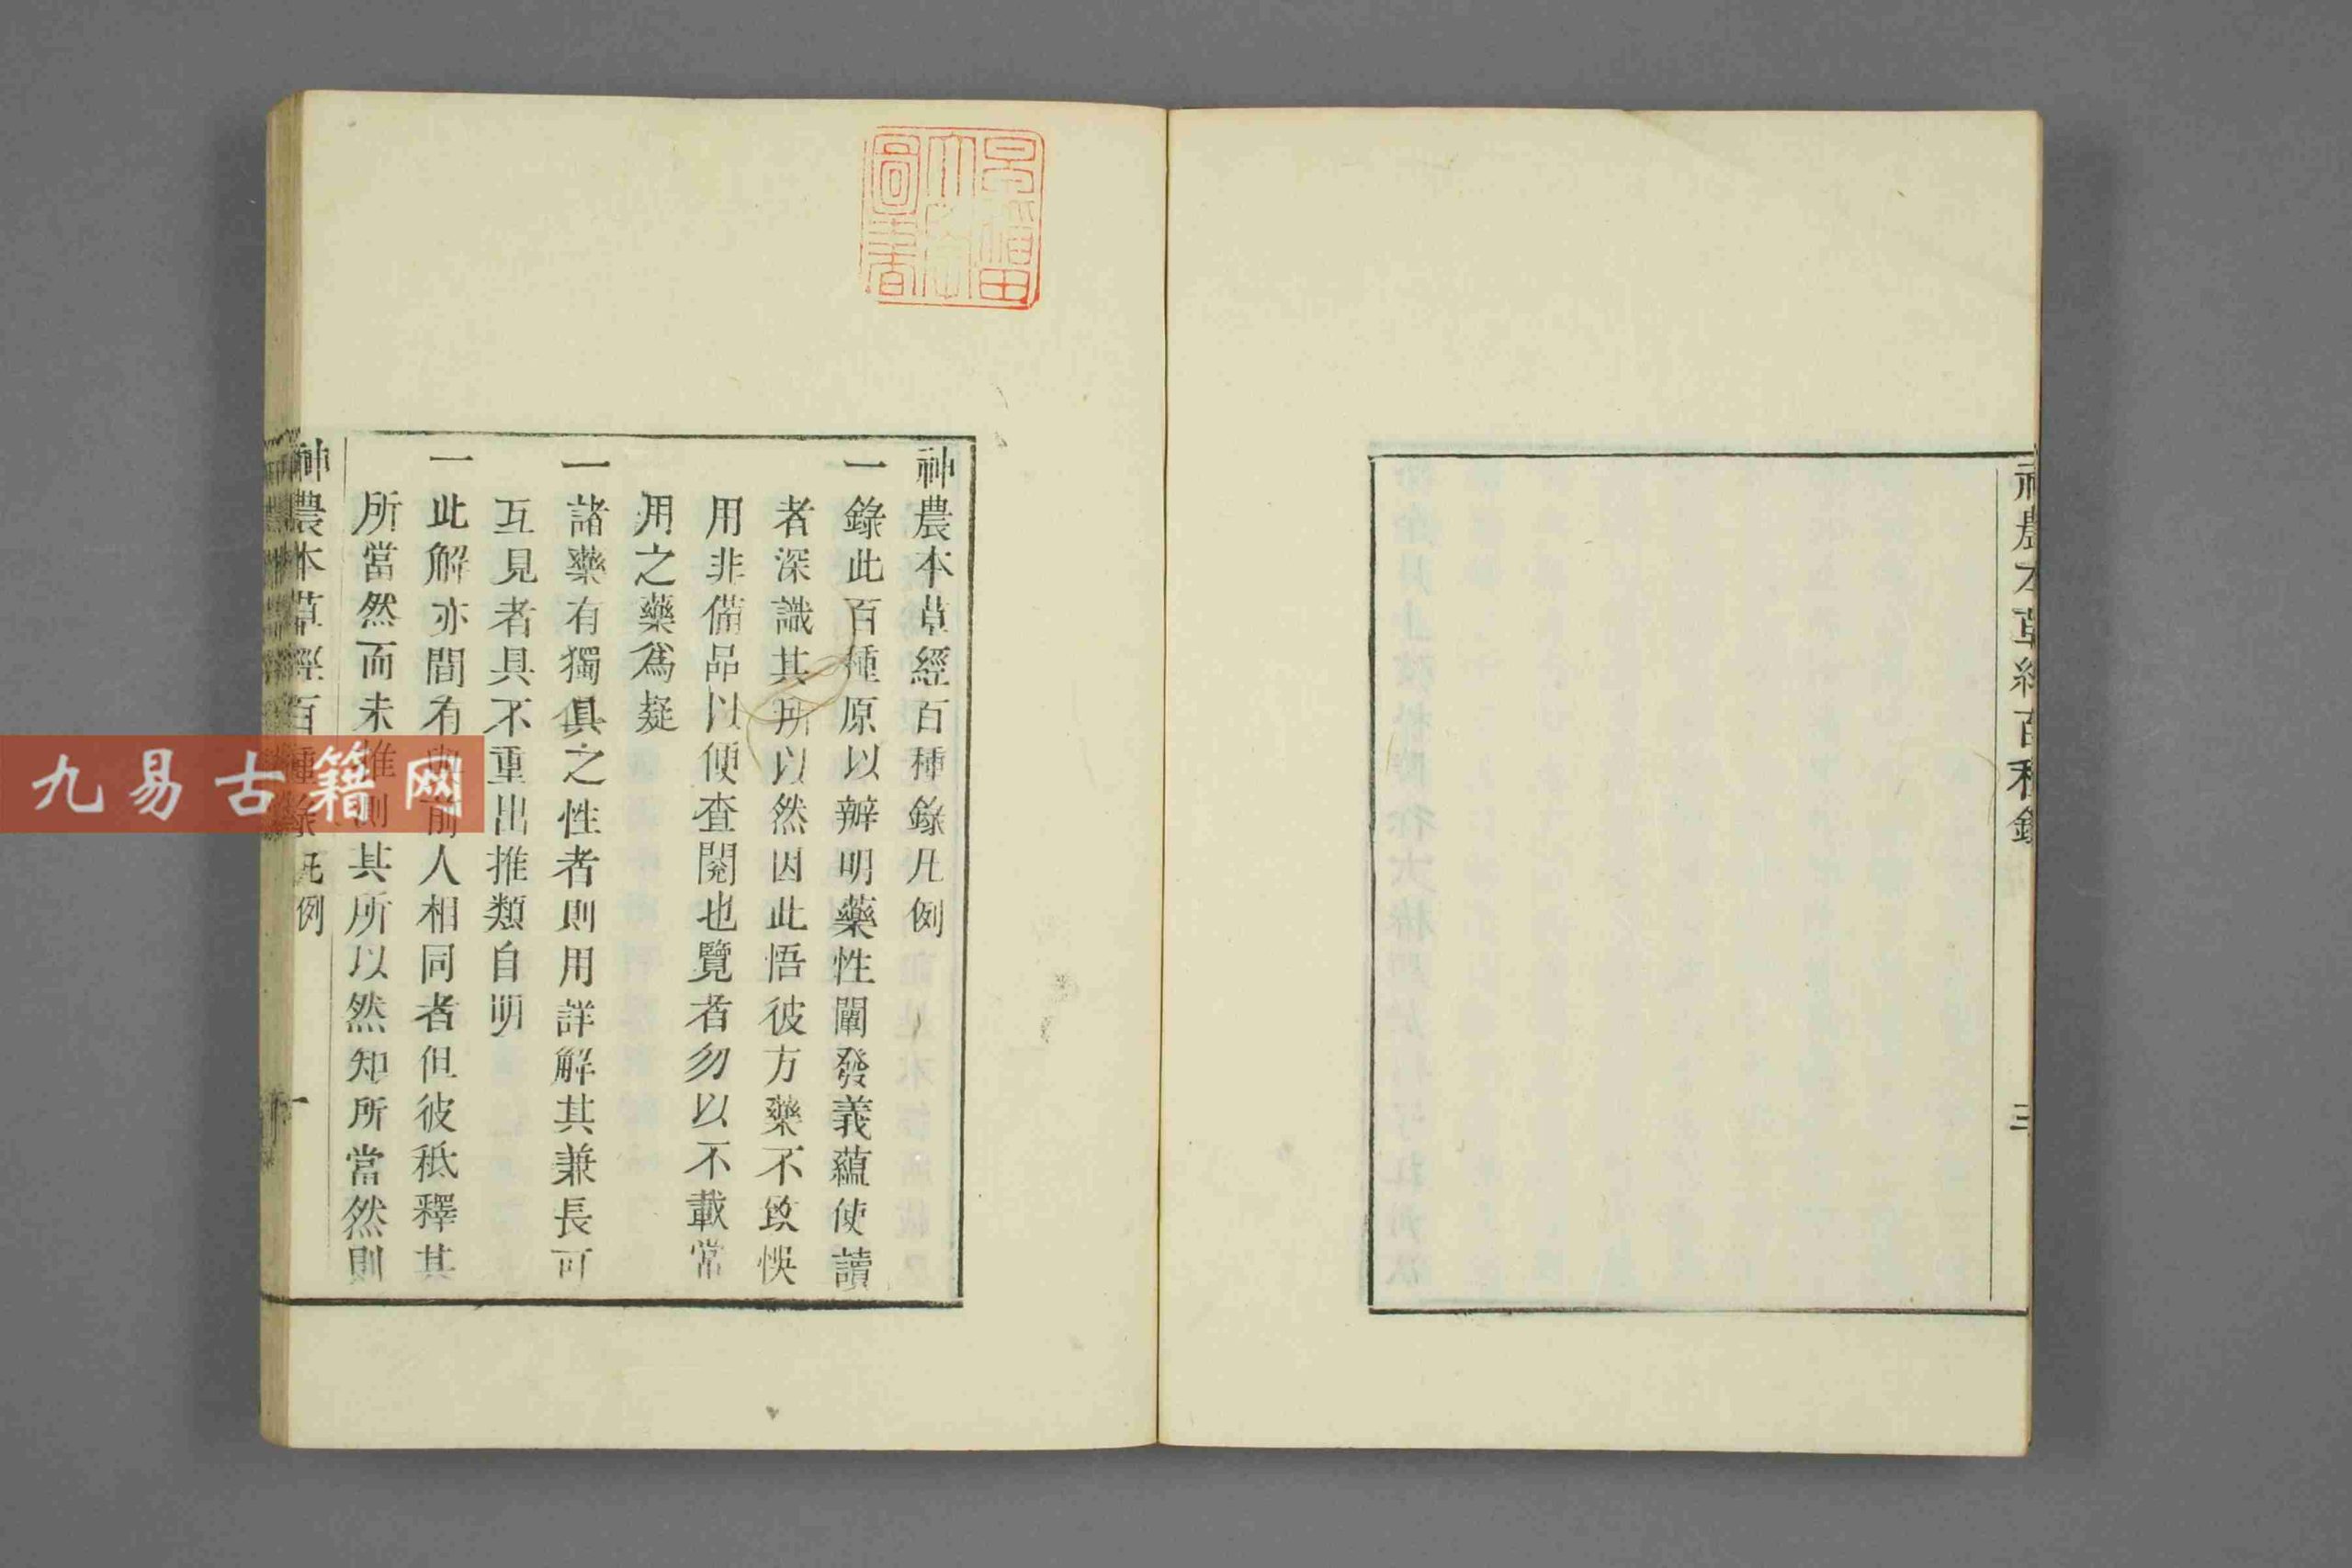 神農本草經百種錄
三
神農本草經百種錄凡例
一錄此百種原以辨明藥性闡發義蘊使讀
者深識其所以然因此悟彼方藥不致悞
用非備品以便查閱也覽者勿以不載常
用之藥為疑
一諸藥有獨具之性者則用詳解其兼長可
互見者具不重出推類自明
一此解亦間有與前人相同者但彼秪釋其
所當然而未推測其所以然知所當然則
神農本草經百種錄凡例
一
圖書
九易古籍网